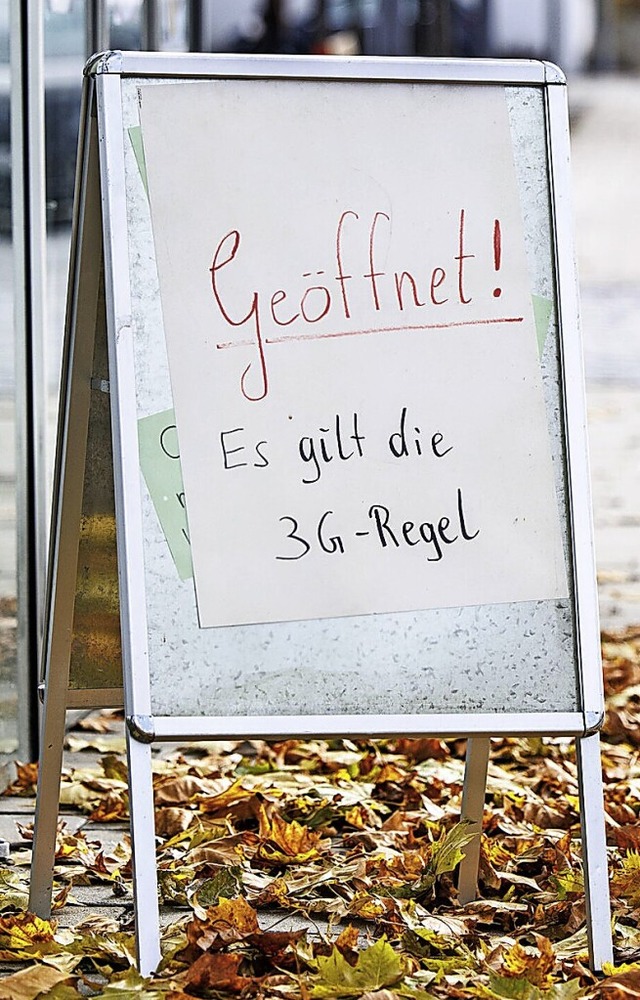 Geöffnet!
Es gilt die
3G-Regel